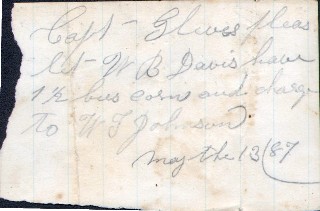 Capt - Glines pleas
let W B Davis have
1½ bus corn and charge
To W T Johnson
May the 13/87